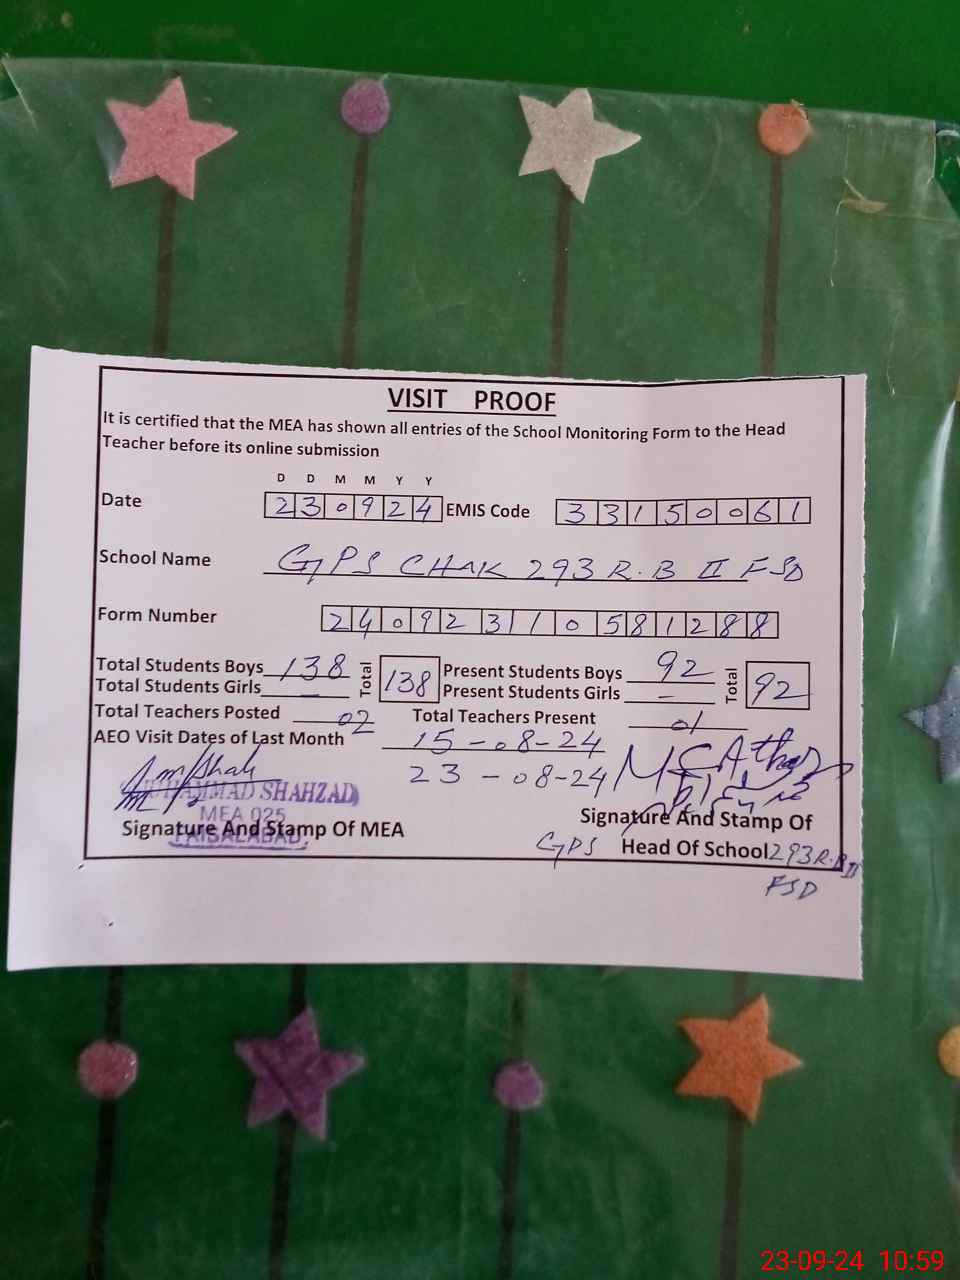 VISIT PROOF
It is certified that the MEA has shown all entries of the School Monitoring Form to the Head
Teacher before its online submission
D D M M Y Y
Date 230924 EMIS Code 33150061
School Name GPS CHAK 293 R.B II FSD
Form Number 240923110581288
Total Students Boys 138 Total 138 Present Students Boys 92 Total 92
Total Students Girls — Present Students Girls —
Total Teachers Posted 02 Total Teachers Present 01
AEO Visit Dates of Last Month 15-08-24
23-08-24
MUHAMMAD SHAHZAD
MEA 025
FAISALABAD
Signature And Stamp Of MEA
Signature And Stamp Of
GPS Head Of School 293 R.B II
FSD
23-09-24 10:59